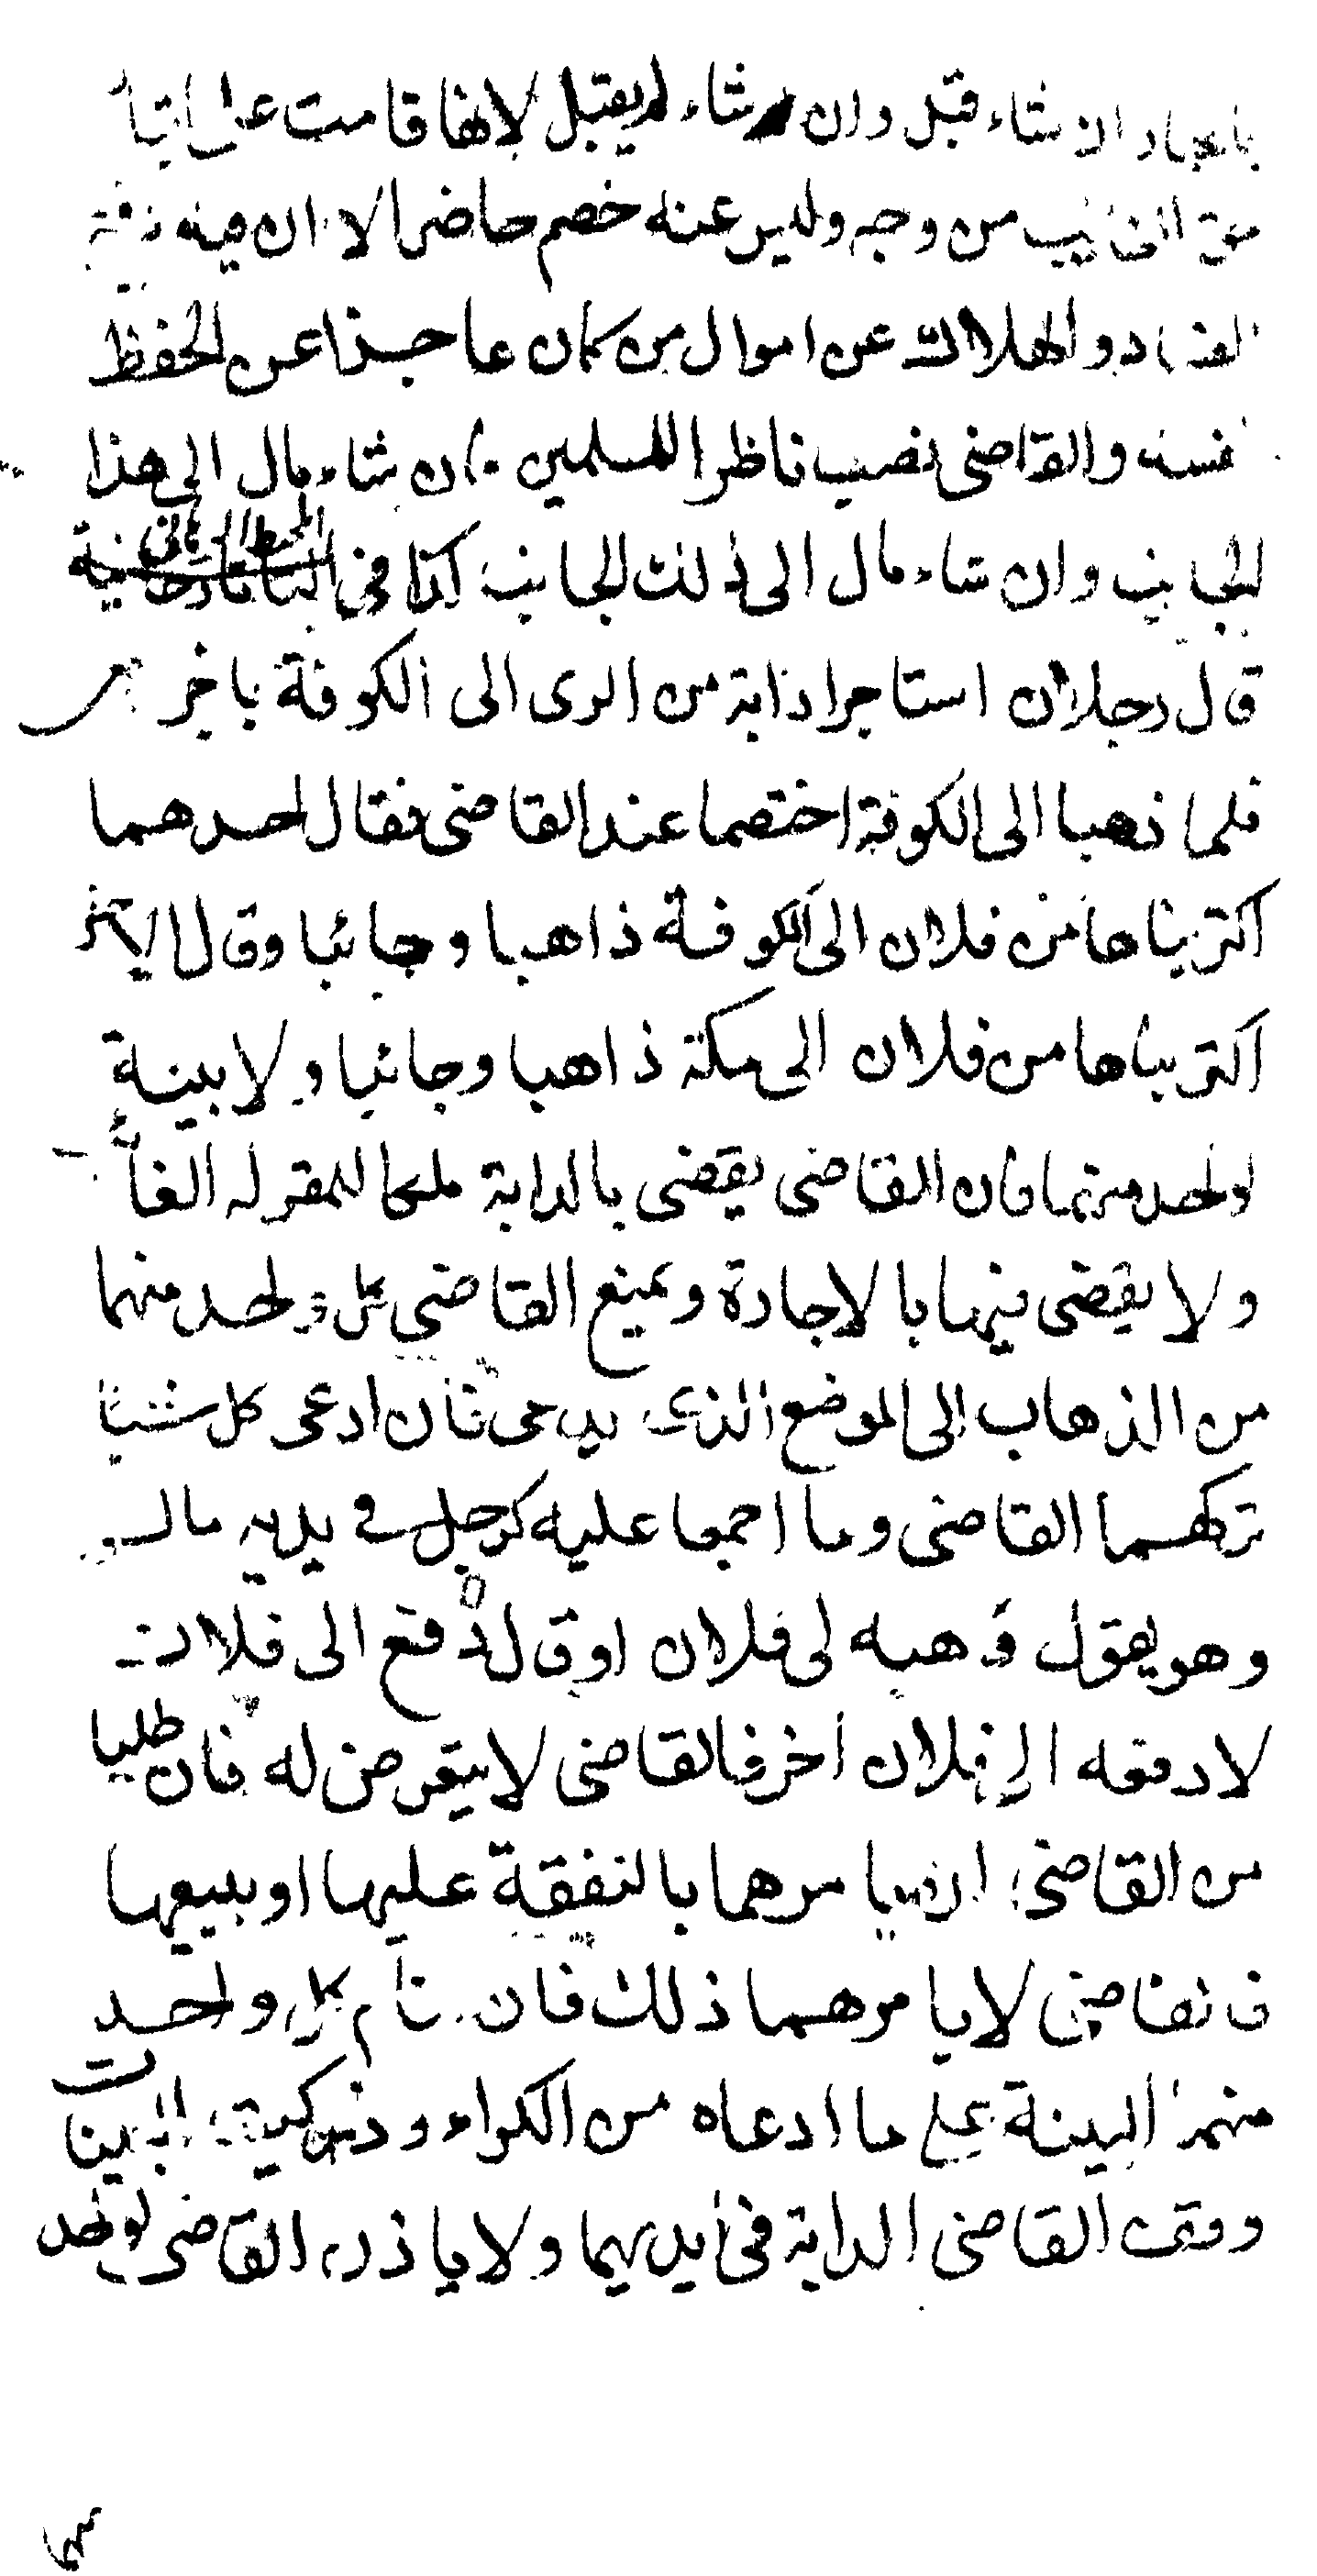 بالخيار ان شاء قبل وان شاء لم يقبل لانها قامت على اثبات
حق الغائب من وجه وليس عنه خصم حاضر الا ان فيه
الفساد والهلاك عن اموال من كان عاجزا عن الحفظ
نفسه والقاضى نصب ناظرا للمسلمين فان شاء مال الى هذا
الجانب وان شاء مال الى ذلك الجانب كذا فى المحيط البرهانى
قال رجلان استاجرا دابة من الرى الى الكوفة باجر
فلما ذهبا الى الكوفة اختصما عند القاضى فقال احدهما
اكتريناها من فلان الى الكوفة ذاهبا وجائيا وقال الاخر
اكتريناها من فلان الى مكة ذاهبا وجائيا ولا بينة
لواحد منهما فان القاضى يقضى بالدابة ملكا للمقر له الغائب
ولا يقضى فيها بالاجارة ويمنع القاضى كل واحد منهما
من الذهاب الى الموضع الذى يدعى فان ادعى كل شيئا
تركهما القاضى وما اجمعا عليه كرجل فى يديه مال
وهو يقول وهبه لى فلان او قال دفع الى فلان
لادفعه الى فلان اخر فالقاضى لا يتعرض له فان طلبا
من القاضى ان يامرهما بالنفقة عليها او ببيعها
فالقاضى لا يامرهما ذلك فان اقام كل واحد
منهما البينة على ما ادعاه من الكراء وزكيت البينات
وقف القاضى الدابة فى ايديهما ولا ياذن القاضى لواحد